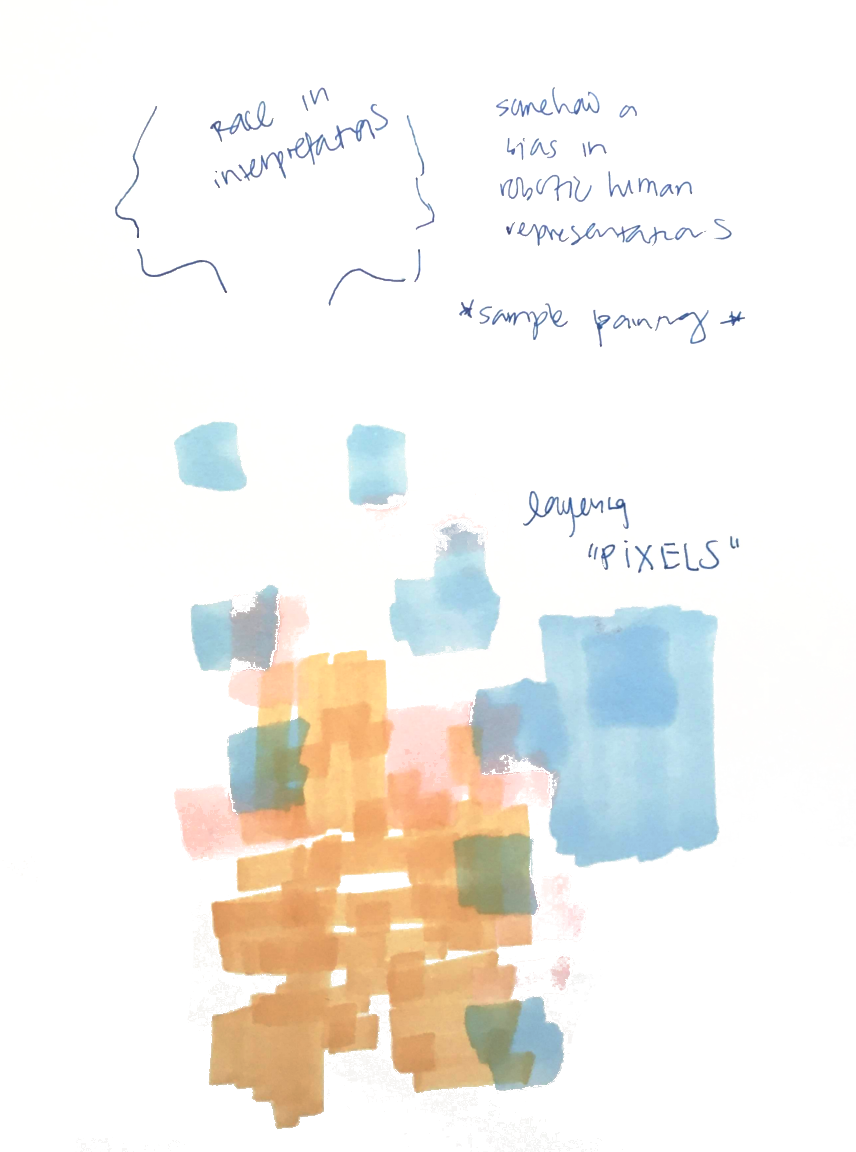 Race in
interpretations
somehow a
bias in
robotic human
representations
*sample pairing*
layering
"PiXELS"